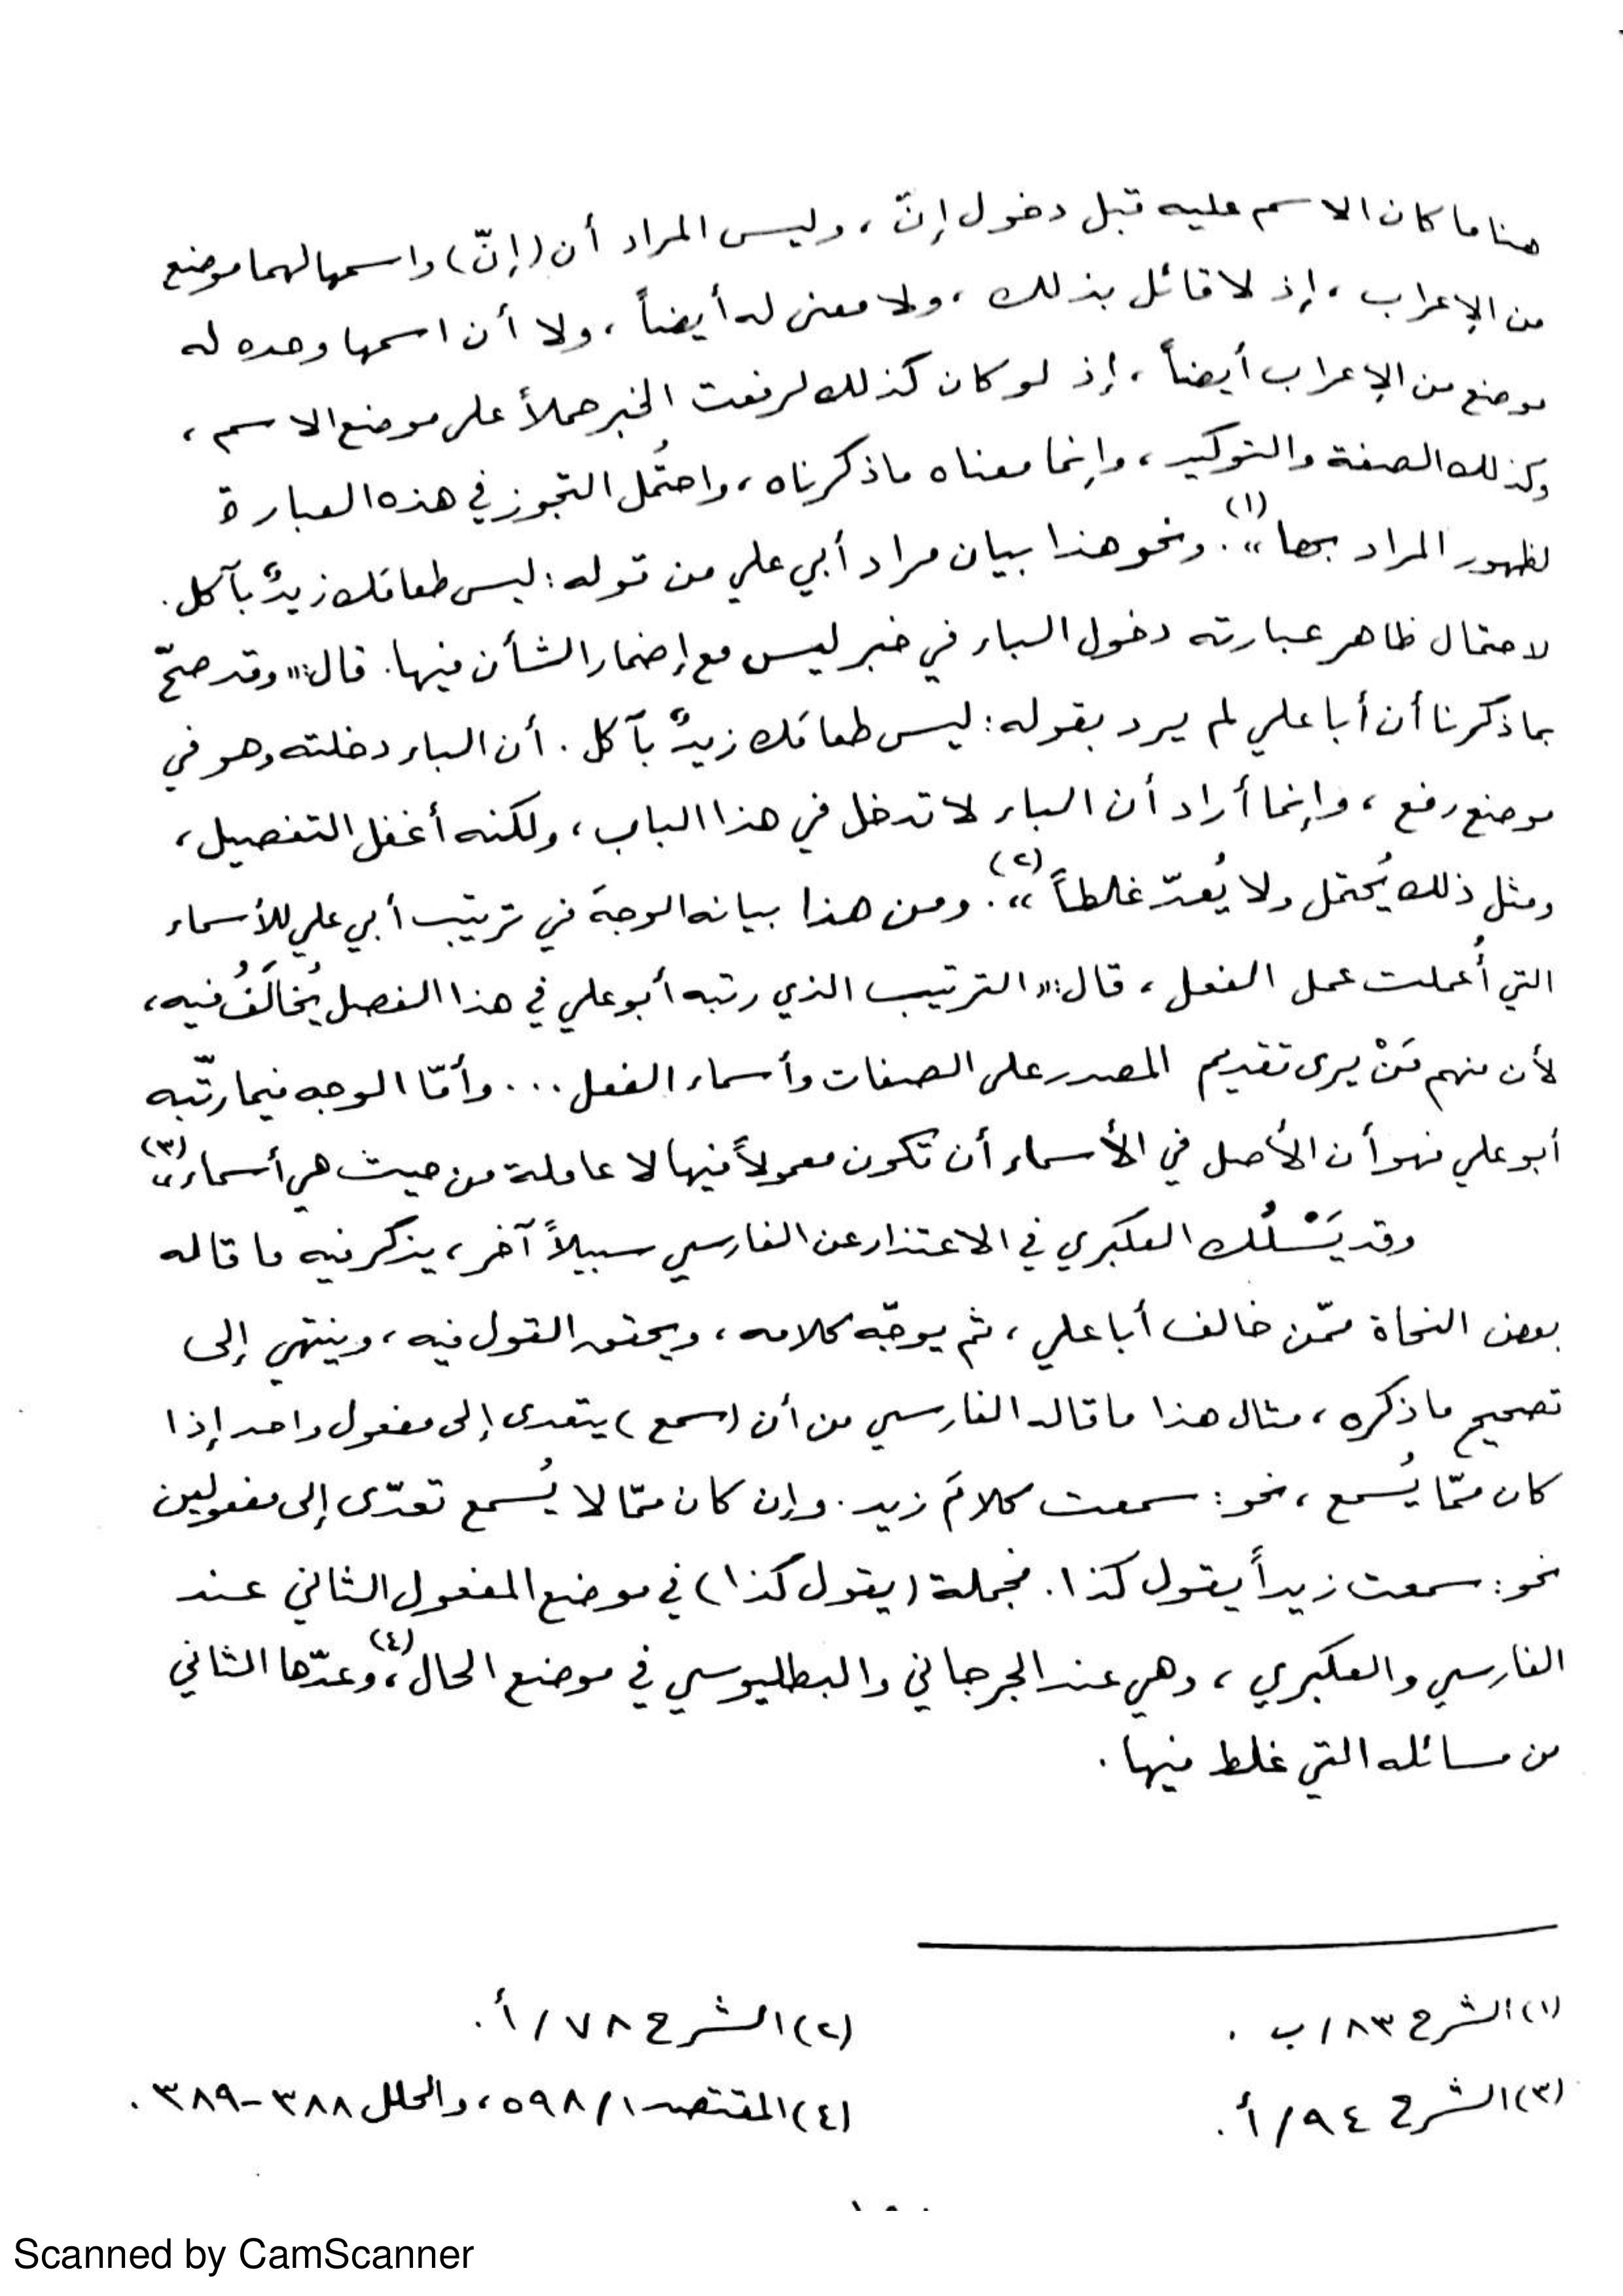 هنا ما كان الاسم عليه قبل دخول إنّ ، وليس المراد أن (إنّ) واسمها لهما موضع
من الإعراب ، إذ لا قائل بذلك ، ولا معنى له أيضاً ، ولا أن اسمها وحده له
موضع من الإعراب أيضاً ، إذ لو كان كذلك لرفعت الخبر حملاً على موضع الاسم ،
وكذلك الصفة والتوكيد ، وإنما معناه ماذكرناه ، واحتُمل التجوز في هذه العبارة
لظهور المراد بها »(١). ونحو هذا بيان مراد أبي علي من قوله : ليس طعامَك زيدٌ بآكل .
لاحتمال ظاهر عبارته دخول الباء في خبر ليس مع إضمار الشأن فيها . قال : « وقد صحّ
بما ذكرنا أن أبا علي لم يرد بقوله : ليس طعامَك زيدٌ بآكل . أن الباء دخلته وهو في
موضع رفع ، وإنما أراد أن الباء لا تدخل في هذا الباب ، ولكنه أغفل التفصيل ،
ومثل ذلك يُحتمل ولا يُعدّ غلطاً »(٢). ومن هذا بيانه الوجهَ في ترتيب أبي علي للأسماء
التي أُعملت عمل الفعل ، قال : « الترتيب الذي رتبه أبو علي في هذا الفصل يُخالَفُ فيه ،
لأن منهم مَنْ يرى تقديم المصدر على الصفات وأسماء الفعل ... وأمّا الوجه فيما رتّبه
أبو علي فهو أن الأصل في الأسماء أن تكون معمولاً فيها لا عاملة من حيث هي أسماء »(٣)
وقد يَسْلُك العكبري في الاعتذار عن الفارسي سبيلاً آخر ، يذكر فيه ما قاله
بعض النحاة ممّن خالف أبا علي ، ثم يوجّه كلامه ، ويحقق القول فيه ، وينتهي إلى
تصحيح ما ذكره ، مثال هذا ما قاله الفارسي من أن (سمع) يتعدى إلى مفعول واحد إذا
كان ممّا يُسمع ، نحو : سمعت كلامَ زيد . وإن كان ممّا لا يُسمع تعدّى إلى مفعولين
نحو : سمعت زيداً يقول كذا . فجملة (يقول كذا) في موضع المفعول الثاني عند
الفارسي والعكبري ، وهي عند الجرجاني والبطليوسي في موضع الحال(٤)، وعدّها الثاني
من مسائله التي غلط فيها .
(١) الشرح ٨٣/ب .
(٢) الشرح ٧٨/أ .
(٣) الشرح ٩٤/أ .
(٤) المقتصد ٥٩٨/١ ، والحلل ٣٨٨-٣٨٩ .
Scanned by CamScanner